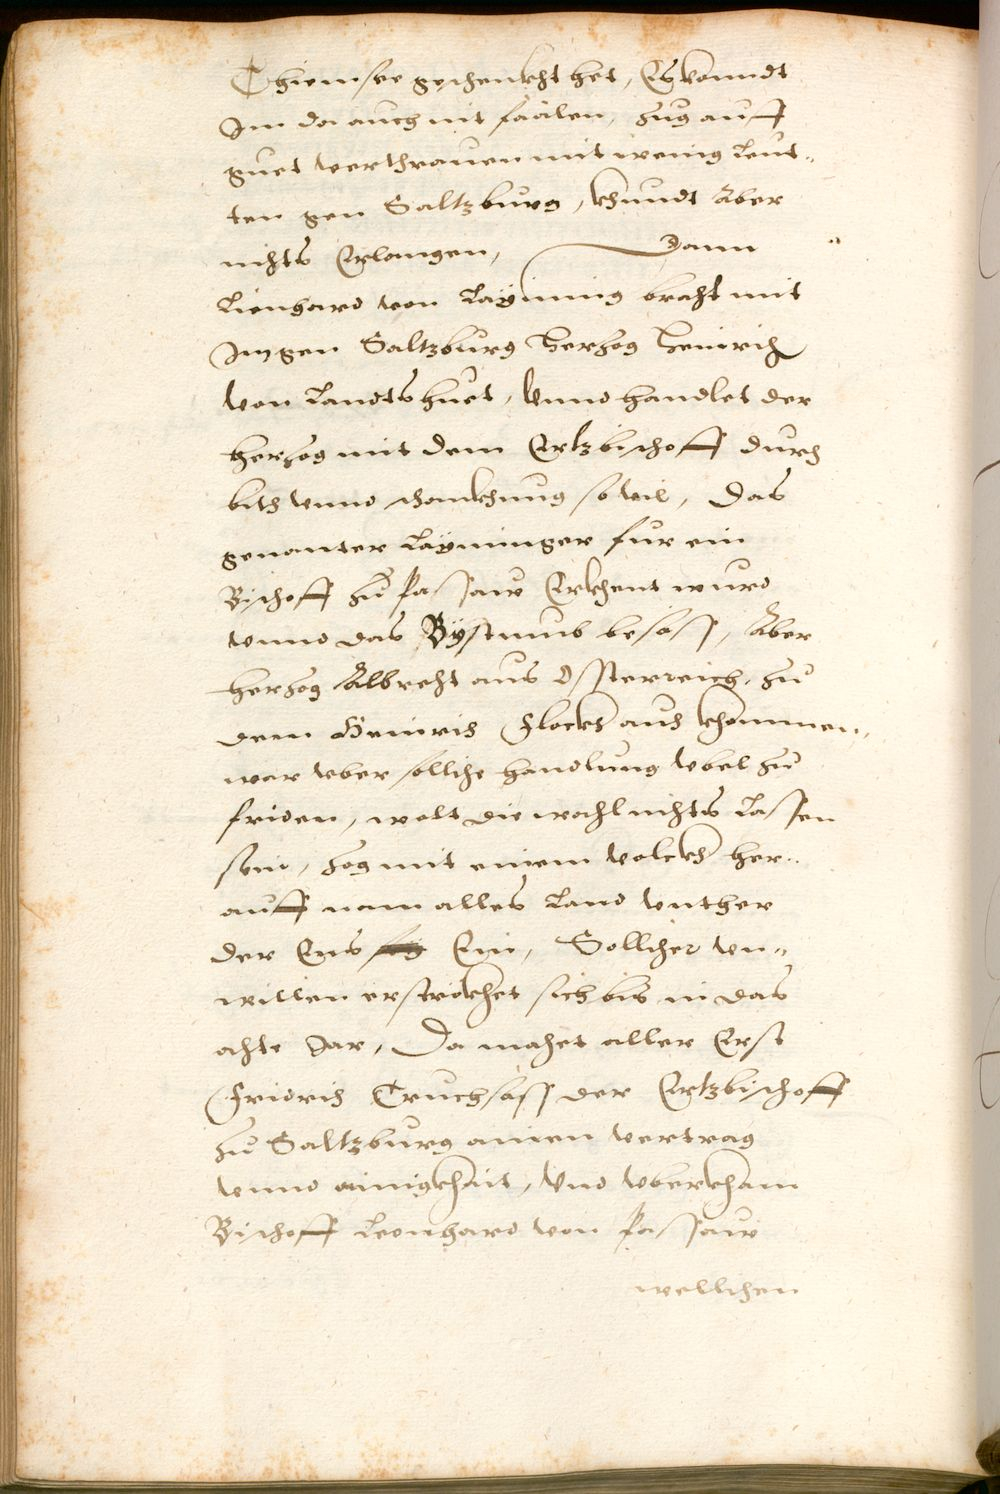 Chiemsee geschenckht het, Es konndt
Im da auch nit faälen, zug auff
guet verthrauen mit wenig Leut-
ten gen Saltzburg, khundt Aber
nichts Erlangen, Dann
Lienhard von Layming bracht mit
Im gen Saltzburg Hertzog Heinrich
von Landtshuet, Vnnd handlet der
hertzog mit dem Ertzbischoff durch
bith vnnd schankhung so vil, Das
genanter Layminger fur ein
Bischoff zu Passaw Erkhent wurd
vnnd das Bystumb besass, Aber
hertzog Albrecht aus Össterreich, zu
dem Heinrich Flockh aus khommen,
war vber sollche handlung vbel zu
friden, wolt die wahl nichts Lassen
sein, zog mit einem volckh her-
auff nam alles Land vnther
der Ens Ein, Sollcher vn-
willen erstrickhet sich bis in das
achte Jar, Da machet aller Erst
Fridrich Truchsass der Ertzbischoff
zu Saltzburg ainen vertrag
vnnd ainigkhait, Vnd vberkham
Bischoff Leonhard von Passaw
wellichen